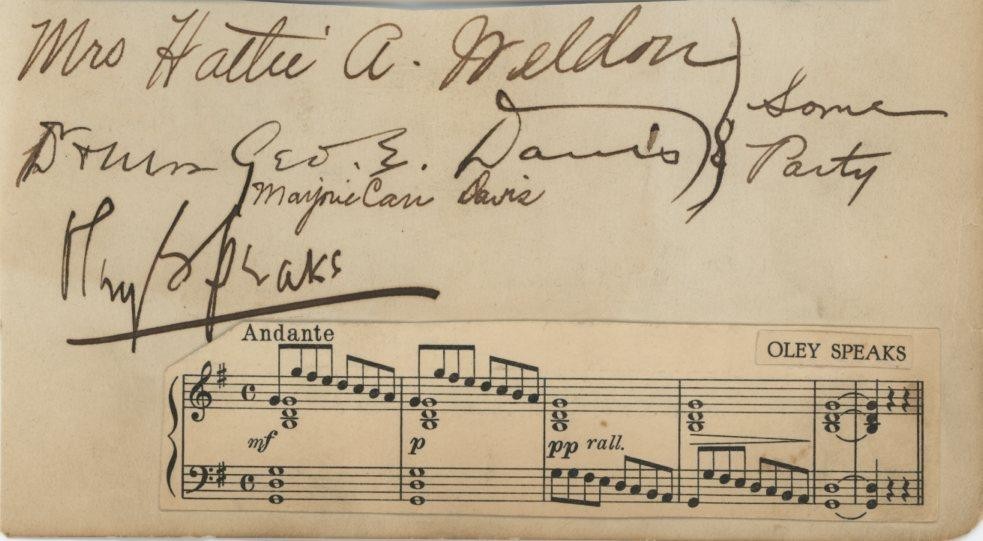 Mrs Hattie A. Weldon
Dr & Mrs Geo. E. Davis
Marjorie Carr Davis
} & Some Party
Oley Speaks
Andante
OLEY SPEAKS
mf p pp rall.